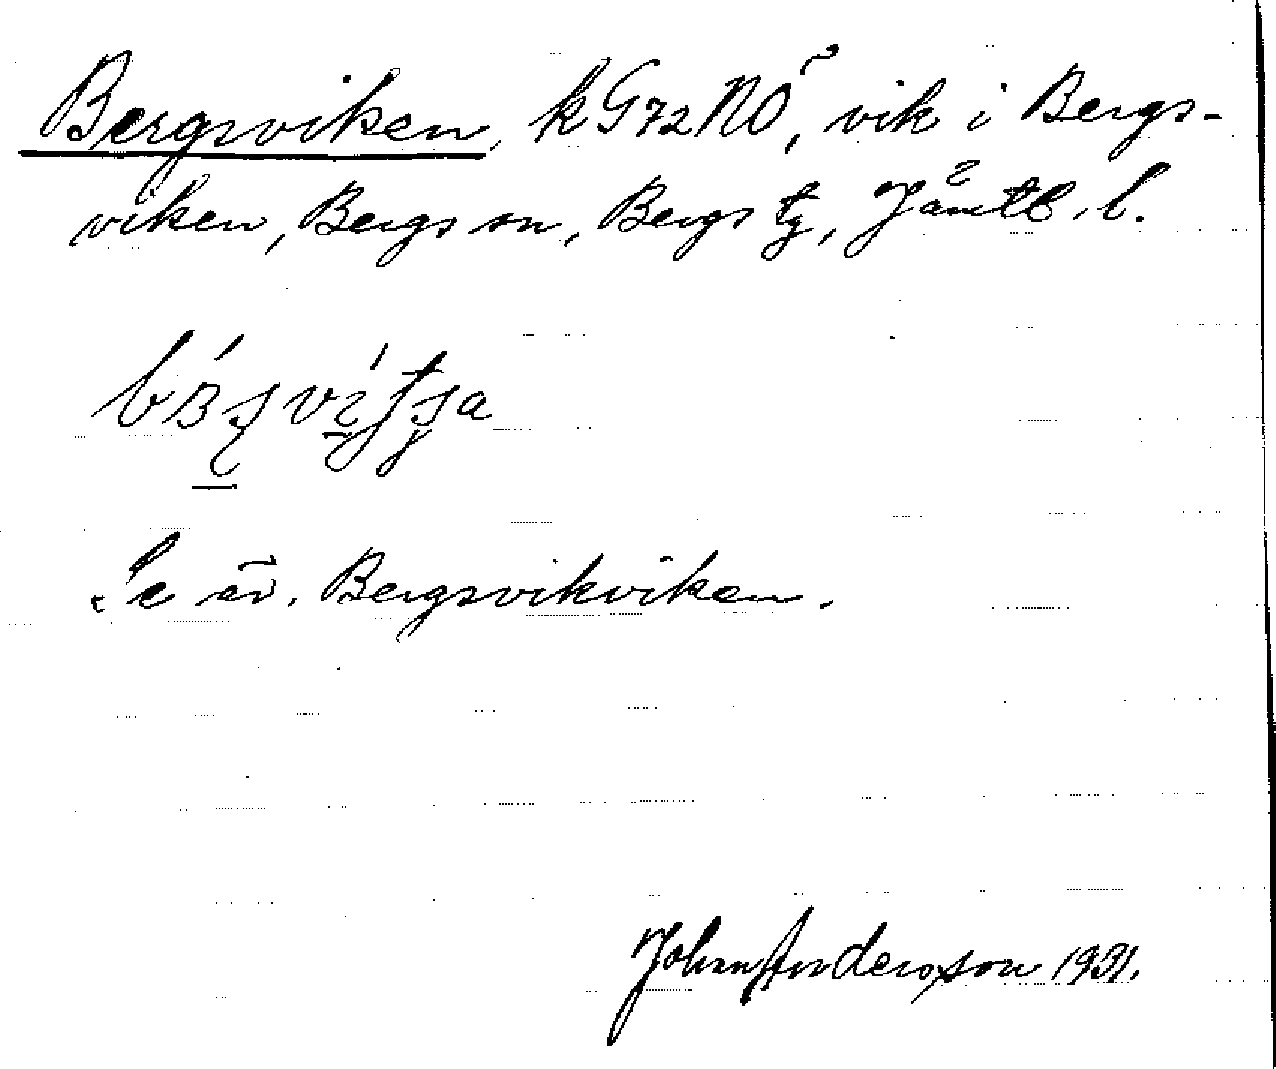 Bergsviken, k G72 NÖ, vik i Bergs-
viken, Bergs sn, Bergs tg, Jämtl. l.
Se äv. Bergsvikviken.
Johan Anderson 1931.